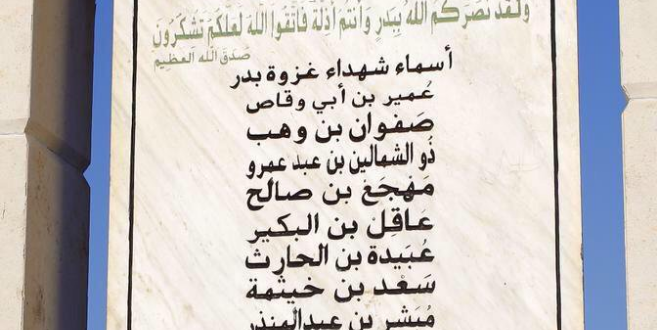 ولقد نصركم الله ببدر وأنتم أذلة فاتقوا الله لعلكم تشكرون
صدق الله العظيم
أسماء شهداء غزوة بدر
عُمير بن أبي وقاص
صَفوان بن وهب
ذُو الشمالين بن عبد عمرو
مَهْجَعْ بن صالح
عَاقِل بن البكير
عُبَيدة بن الحارث
سَعْد بن خيثمة
مُبَشر بن عبدالمنذر